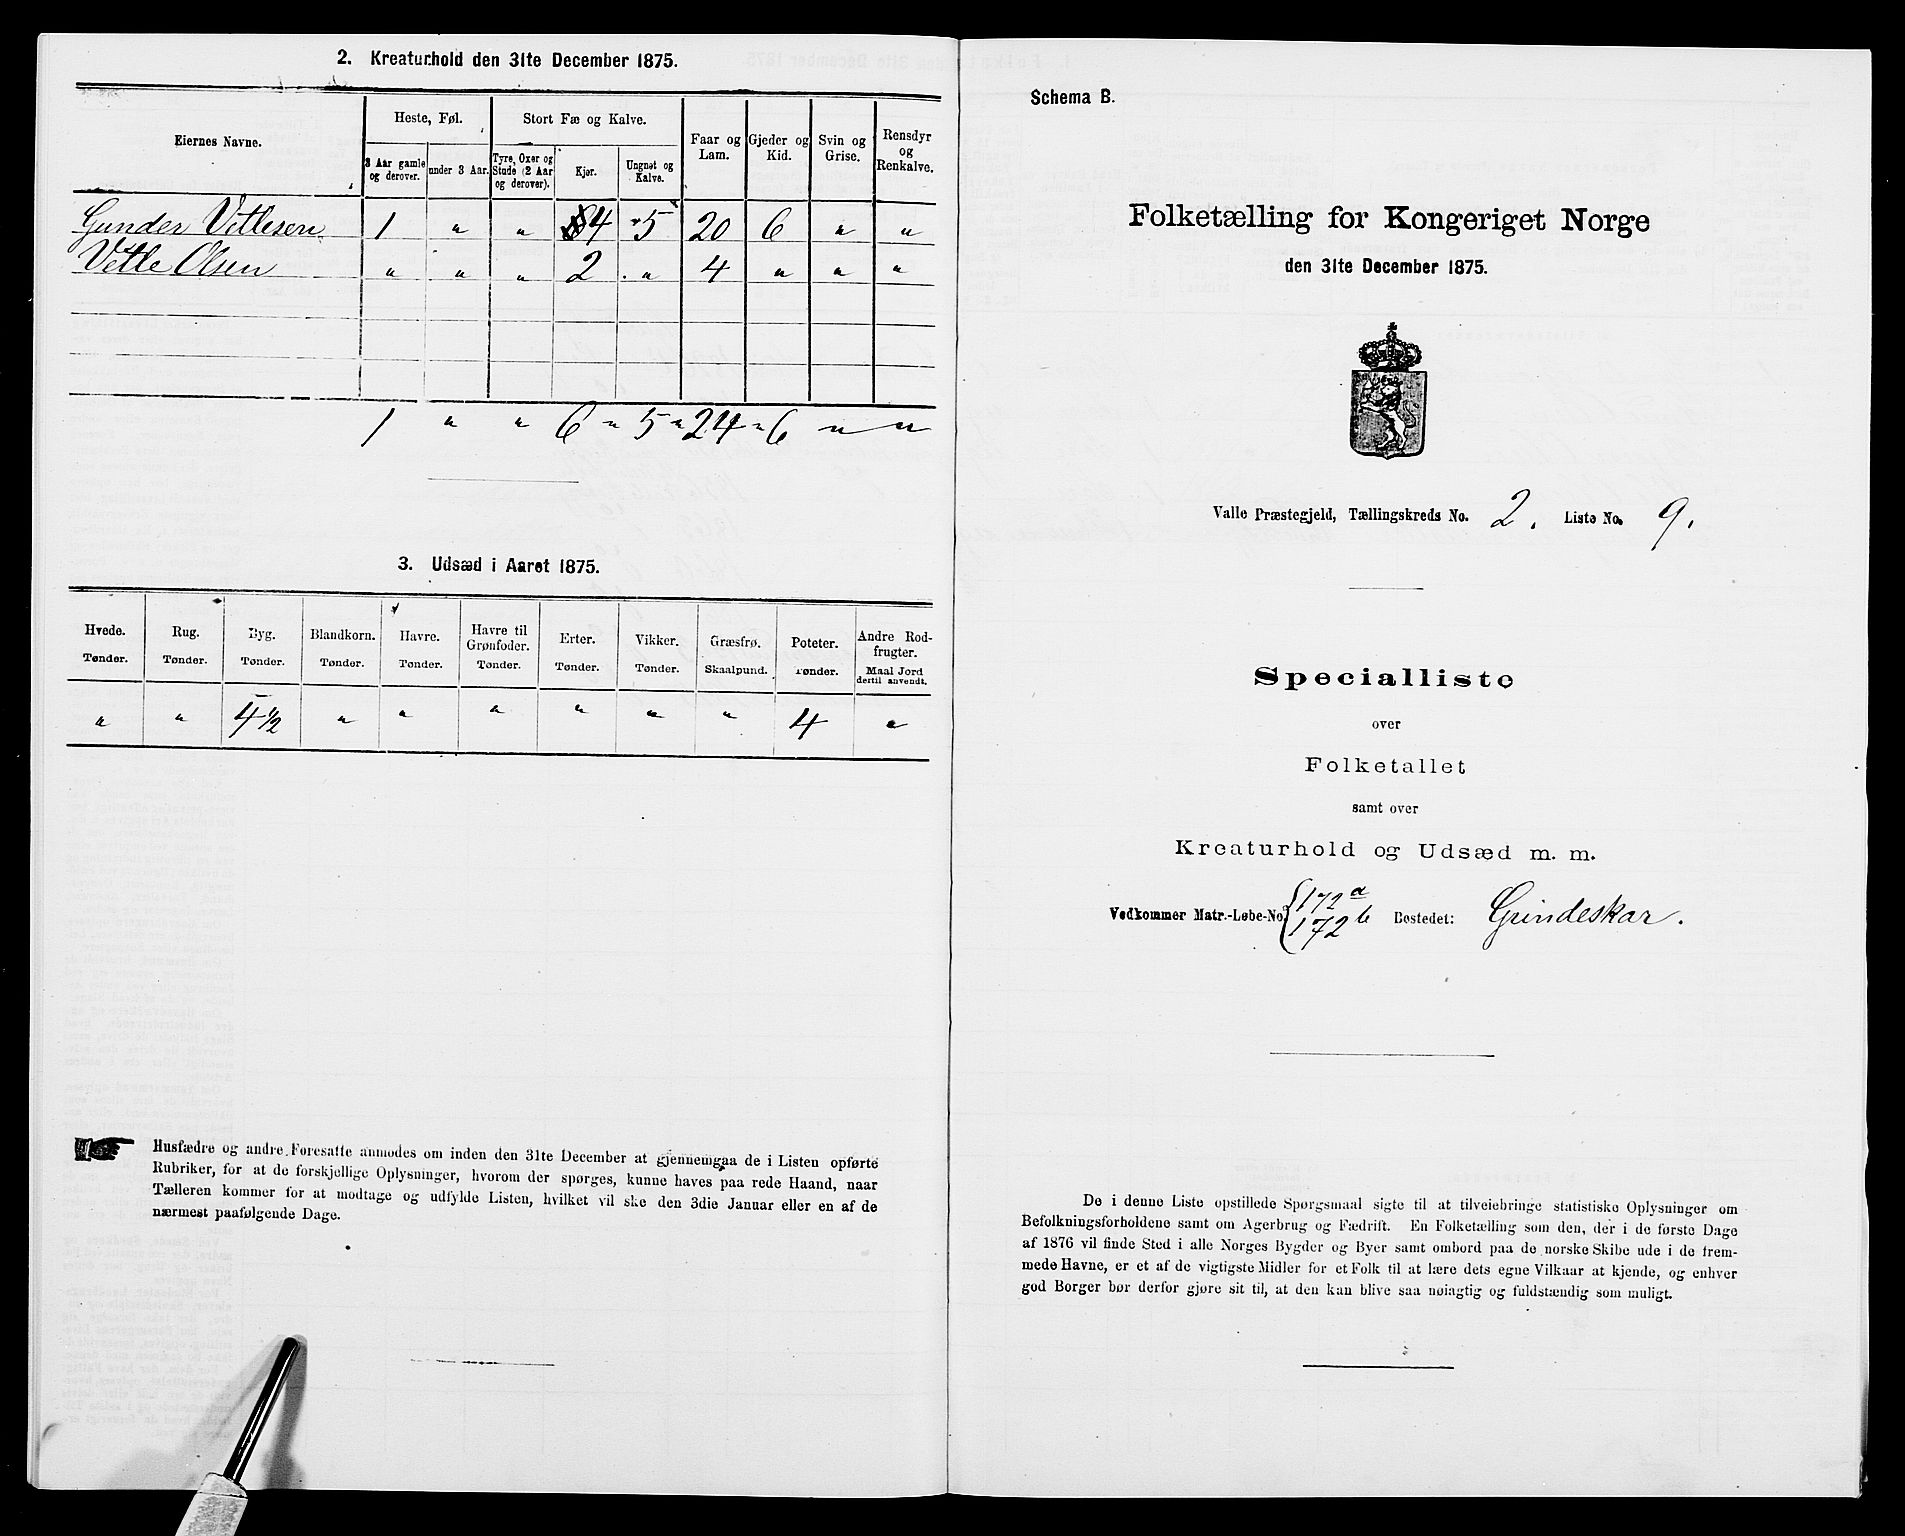 2. Kreaturhold den 31te December 1875.
Eiernes Navne. Heste, Føl. Stort Fæ og Kalve. Faar og Lam. Gjeder og Kid. Svin og Grise. Rensdyr og Renkalve.
3 Aar gamle og derover. under 3 Aar. Tyre, Oxer og Stude (2 Aar og derover). Kjør. Ungnøt og Kalve.
Gunder Vetlesen 1 " " 4 5 20 6 " "
Vetle Olsen " " " 2 " 4 " " "
1 " " 6 " 5 " 24 " 6 " "
3. Udsæd i Aaret 1875.
Hvede. Rug. Byg. Blandkorn. Havre. Havre til Grønfoder. Erter. Vikker. Græsfrø. Poteter. Andre Rodfrugter.
Tønder. Tønder. Tønder. Tønder. Tønder. Tønder. Tønder. Tønder. Skaalpund. Tønder. Maal Jord dertil anvendt.
" " 4 1/2 " " " " " " 4 "
Husfædre og andre Foresatte anmodes om inden den 31te December at gjennemgaa de i Listen opførte
Rubriker, for at de forskjellige Oplysninger, hvorom der spørges, kunne haves paa rede Haand, naar
Tælleren kommer for at modtage og udfylde Listen, hvilket vil ske den 3die Januar eller en af de
nærmest paafølgende Dage.
Schema B.
Folketælling for Kongeriget Norge
den 31te December 1875.
Valle Præstegjeld, Tællingskreds No. 2. Liste No. 9.
Specialliste
over
Folketallet
samt over
Kreaturhold og Udsæd m. m.
Vedkommer Matr.-Løbe-No. { 172a 172b Bostedet: Grindeskar.
De i denne Liste opstillede Spørgsmaal sigte til at tilveiebringe statistiske Oplysninger om
Befolkningsforholdene samt om Agerbrug og Fædrift. En Folketælling som den, der i de første Dage
af 1876 vil finde Sted i alle Norges Bygder og Byer samt ombord paa de norske Skibe ude i de frem-
mede Havne, er et af de vigtigste Midler for et Folk til at lære dets egne Vilkaar at kjende, og enhver
god Borger bør derfor gjøre sit til, at den kan blive saa nøiagtig og fuldstændig som muligt.